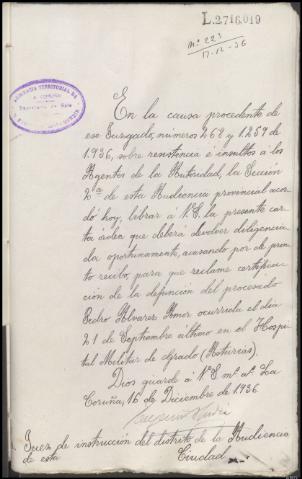 L.2716,019
nº 223
17-12-36
AUDIENCIA TERRITORIAL DE
En la causa procedente de
ese Juzgado, números 262 y 1.259 de
1.936, sobre resistencia é insultos á los
Agentes de la Autoridad, la Sección
2ª de esta Audiencia provincial acor
dó hoy, librar á V.S. la presente car
ta órden que deberá devolver diligencia
da oportunamente, acusando por de pron
to recibo, para que reclame certifica
ción de la defunción del procesado
Pedro Alvares Amor ocurrida el dia
21 de Septiembre último en el Hospi
tal Militar de Grado (Asturias).
Dios guarde á V.S. mˢ aˢ La
Coruña, 16 de Diciembre de 1.936
Juez de instrucción del distrito de la Audiencia
de esta Ciudad